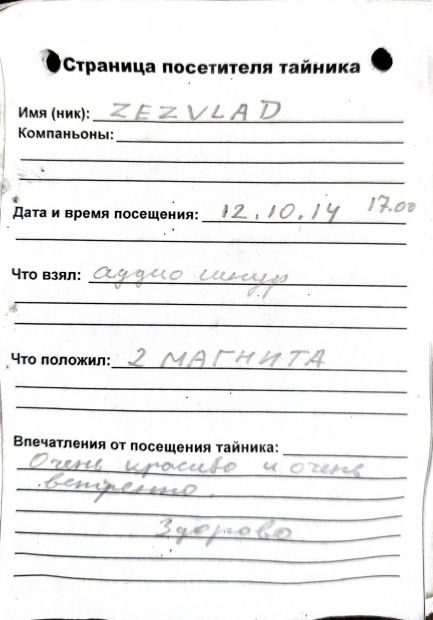 Страница посетителя тайника
Имя (ник): ZEZVLAD
Компаньоны:
Дата и время посещения: 12.10.14 17.00
Что взял: аудио шнур
Что положил: 2 МАГНИТА
Впечатления от посещения тайника:
Очень красиво и очень
ветренно.
Здорово